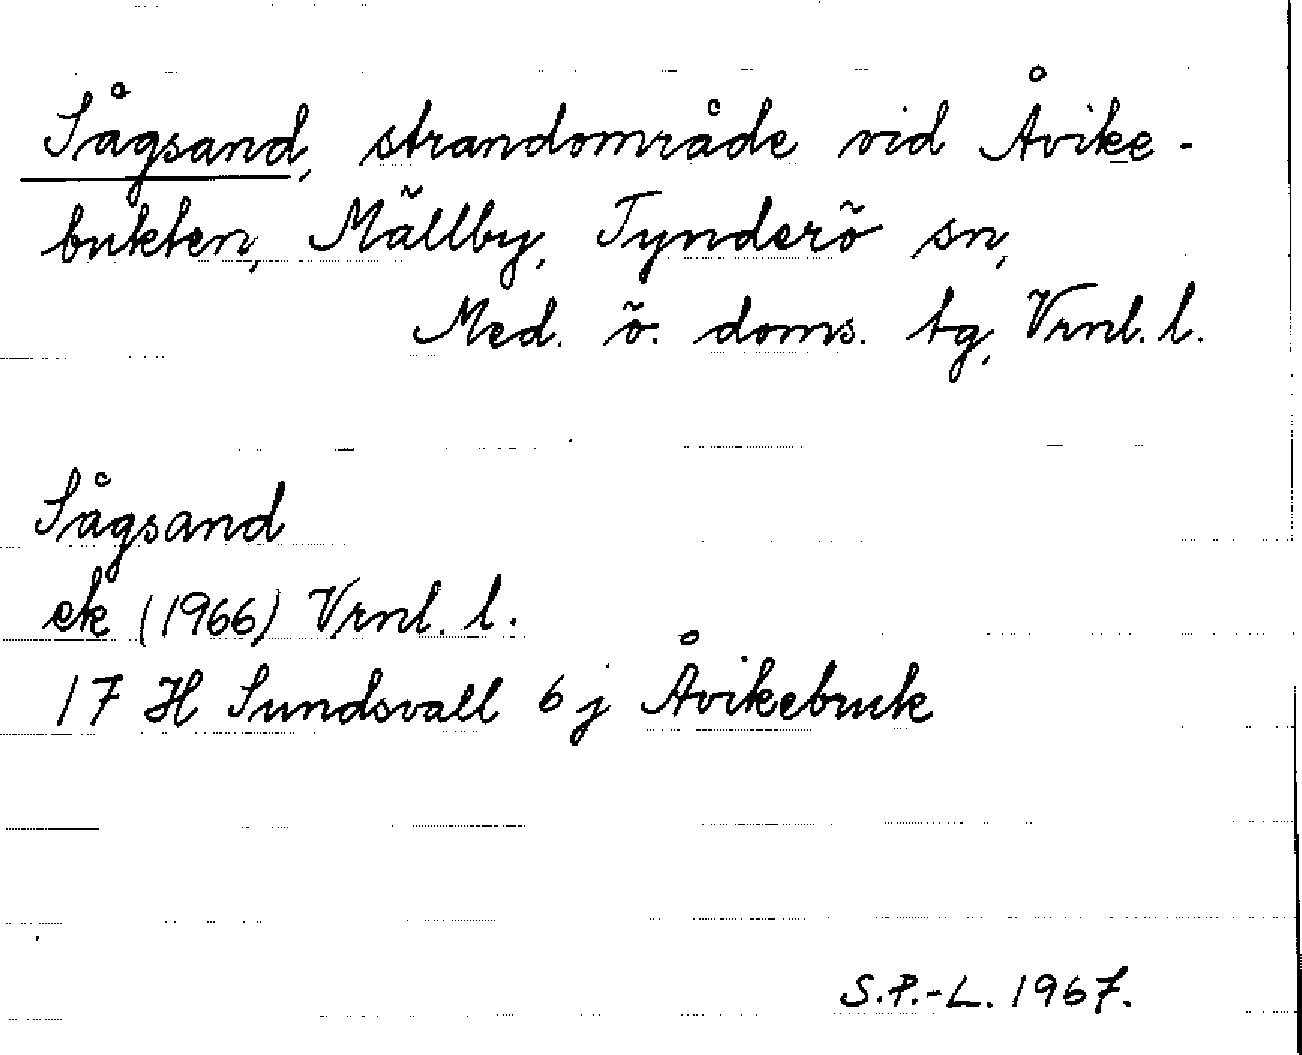 Sågsand, strandområde vid Åvike-
bukten, Mällby, Tynderö sn,
Med. ö. doms. tg, Vrnl. l.
Sågsand
ek (1966) Vrnl. l.
17 H Sundsvall 6 j Åvikebruk
S.P.-L. 1967.